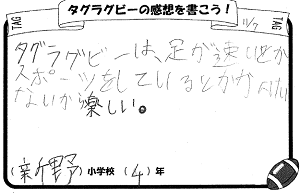 タグラグビーの感想を書こう!
TAG
11/7
TAG
タグラグビーは、足が速いとか
スポーツをしているとかかんけい
ないから楽しい。
(新野)小学校 (4)年